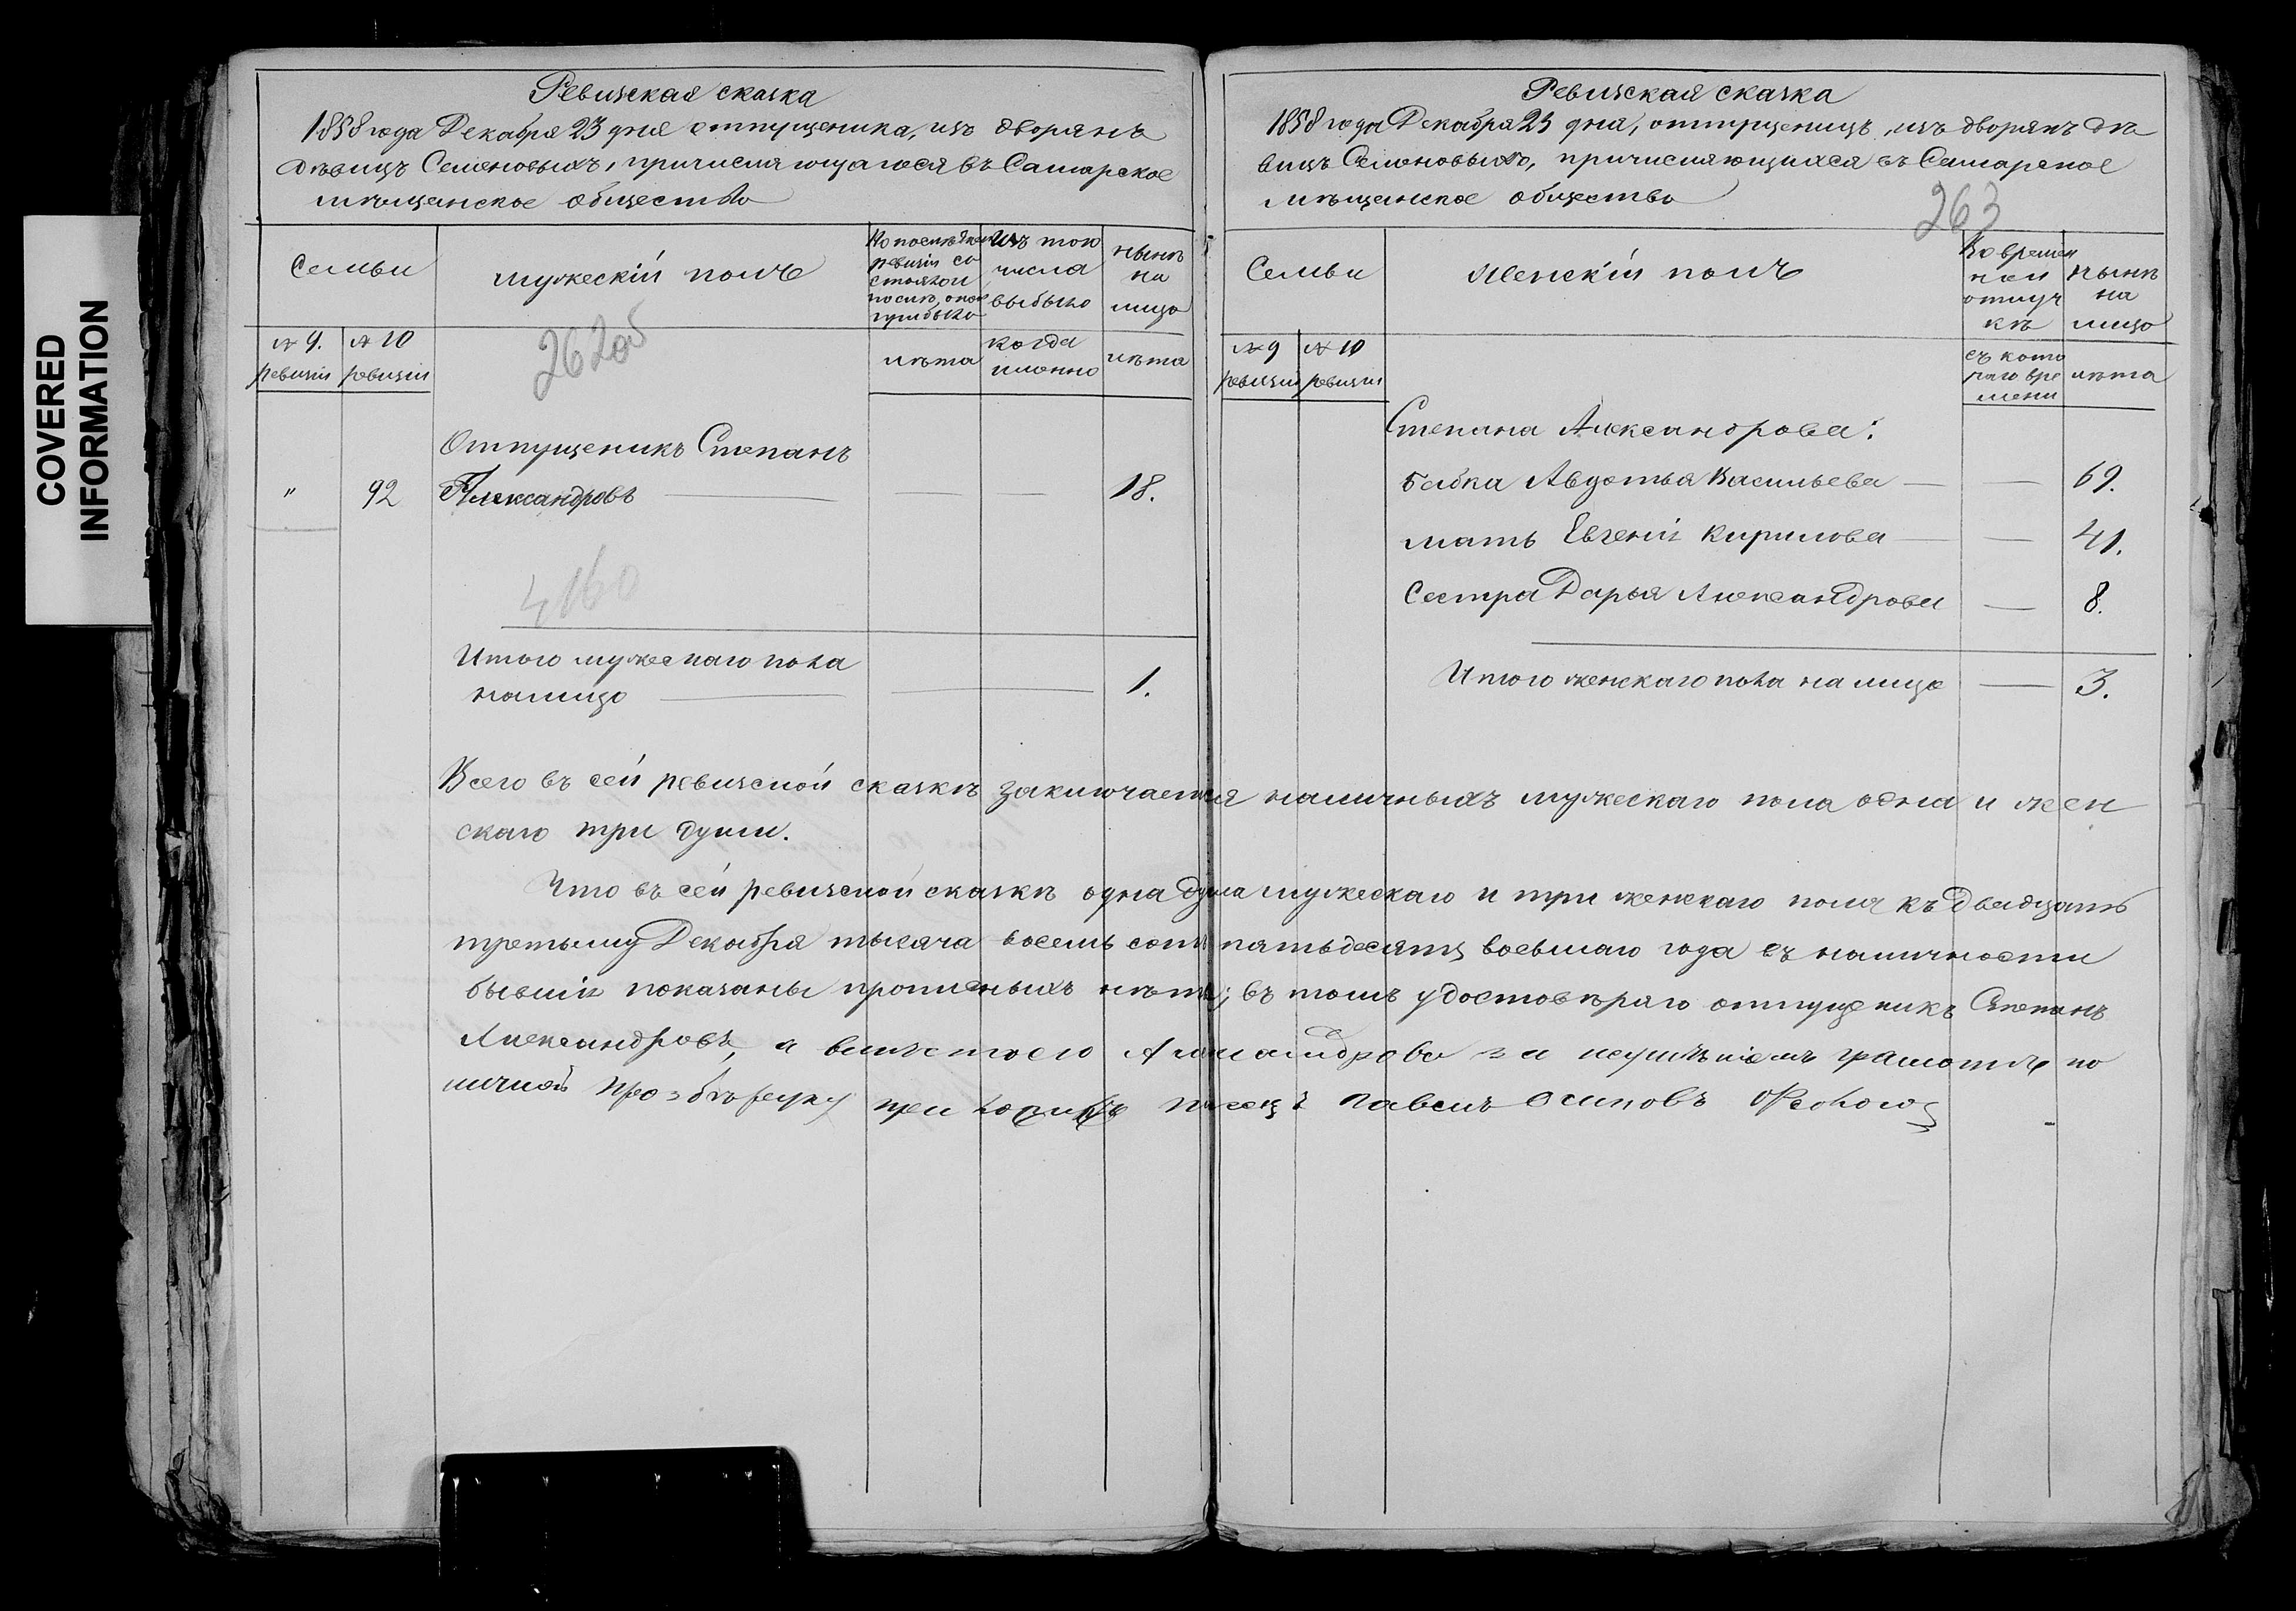 COVERED
INFORMATION
Ревизская сказка
1858 года Декабря 23 дня отпущеника, изъ дворянъ
дѣвицъ Семеновыхъ, причисляющагося въ Самарское
мѣщанское общество
Семьи
мужескій полъ
По послѣдней
ревизіи со
стояло и
послѣ оной
прибыло
Изъ того
числа
выбыло
нынѣ
на
лицо
№ 9.
ревизіи
№ 10
ревизіи
262об
лѣта
когда
именно
лѣта
Отпущеникъ Степанъ
" 92 Александровъ 18.
4160
Итого мужескаго пола
налицо 1.
Ревизская сказка
1858 года Декабря 23 дня, отпущеницъ, изъ дворянъ дѣ
вицъ Семеновыхъ, причисляющихся въ Самарское
мѣщанское общество
263
Семьи
женскій полъ
Во времен
ной
отлуч
кѣ
нынѣ
на
лицо
№ 9
ревизіи
№ 10
ревизіи
съ кото
раго вре
мени
лѣта
Степана Александрова:
бабка Авдотья Васильева 69.
мать Евгенія Кирилова 41.
Сестра Дарья Александрова 8.
Итого женскаго пола налицо 3.
Всего въ сей ревизской сказкѣ заключается наличныхъ мужескаго пола одна и жен
скаго три души.
Что въ сей ревизской сказкѣ одна душа мужескаго и три женскаго пола къ двадцать
третьему Декабря тысяча восемь сотъ пятьдесятъ восьмаго года въ наличности
бывшія показаны прописныхъ нѣтъ; въ томъ удостовѣряю отпущеникъ Степанъ
Александровъ, а вмѣсто его Александрова за неумѣніемъ грамотѣ по
личной прозбѣ руку приложилъ писецъ Павелъ Осиповъ